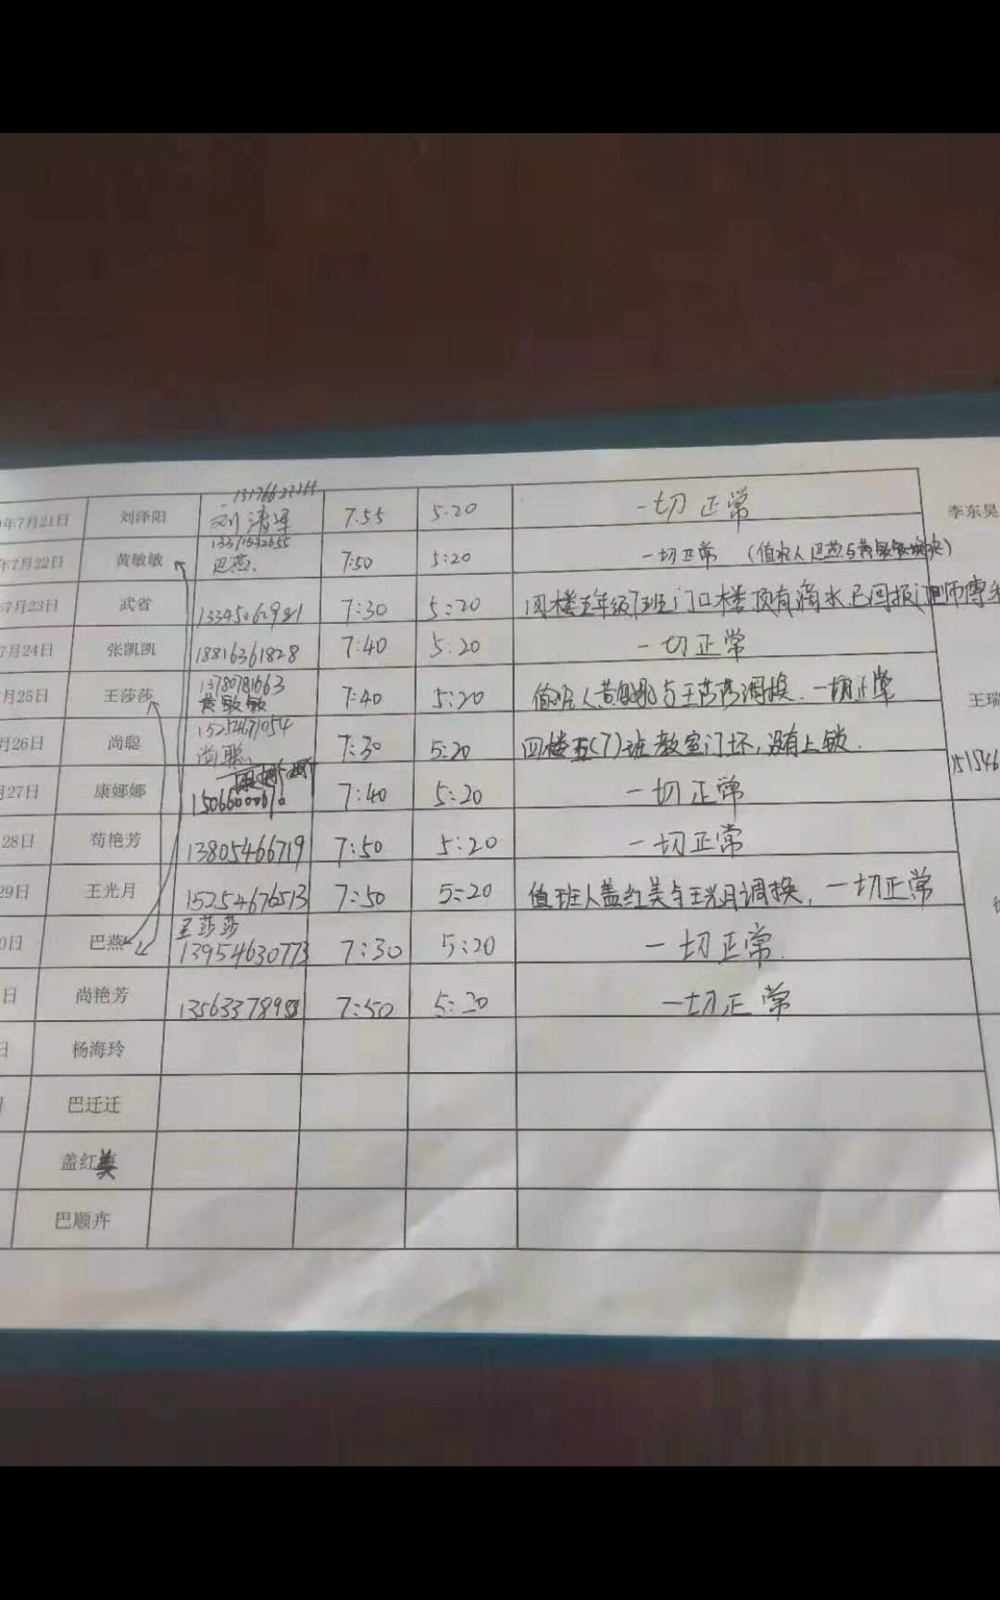 年7月21日 刘泽阳 刘清军 7.55 5.20 一切正常 李东昊
年7月22日 黄敏敏 巴燕. 7:50 5:20 一切正常 (值班人巴燕与黄敏敏
7月23日 武省 7:30 5:20 四楼五年级7班门口楼顶有滴水已回报门卫师傅
7月24日 张凯凯 18816361828 7:40 5:20 一切正常
月25日 王莎莎 13780781663 黄敏敏 7:40 5:20 值班人黄敏敏与王莎莎调换. 一切正常 王瑞
月26日 尚聪 15254671054 尚聪. 7:30 5:20 四楼五(7)班教室门坏,没有上锁.
月27日 康娜娜 7:40 5:20 一切正常 151546
28日 苟艳芳 13805466719 7:50 5:20 一切正常
29日 王光月 15254676513 7:50 5:20 值班人盖红美与王光月调换, 一切正常
0日 巴燕 王莎莎 13954630773 7:30 5:20 一切正常.
日 尚艳芳 7:50 5:20 一切正常
日 杨海玲
巴迁迁
盖红美
巴顺卉